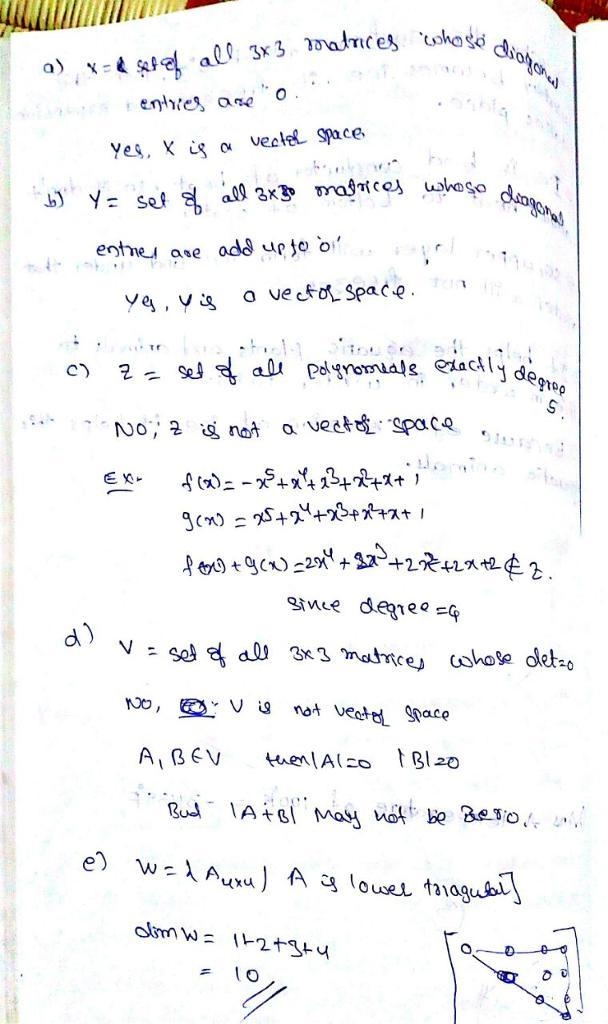 a) X = set of all 3x3 matrices whose diagonal
entries are "0".
Yes, X is a vector space.
b) Y = set of all 3x3 matrices whose diagonal
entries are add up to '0'
Yes, Y is a vector space.
c) Z = set of all polynomials exactly degree
5.
NO, Z is not a vector space
Ex:- f(x) = -x⁵+x⁴+x³+x²+x+1
g(x) = x⁵+x⁴+x³+x²+x+1
f(x)+g(x) = 2x⁴+2x³+2x²+2x+2 ∉ Z.
Since degree = 4
d) V = set of all 3x3 matrices whose det=0
NO, V is not vector space
A, B ∈ V then |A|=0 |B|=0
But |A+B| may not be zero.
e) W = { A4x4 | A is lower triagular}
dim W = 1+2+3+4
= 10